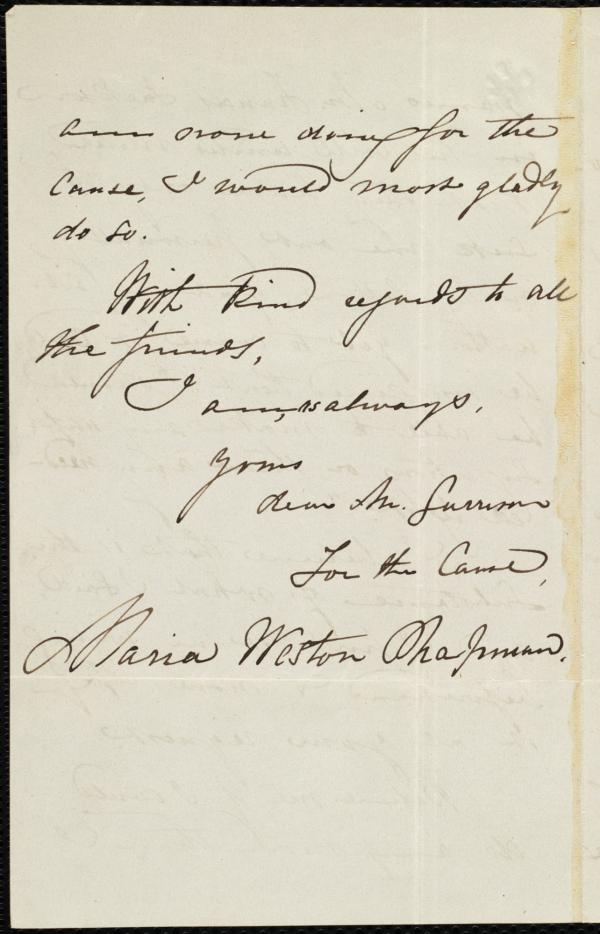 am none doing for the
Cause, I would most gladly
do so.
With kind regards to all
the friends,
I am, as always,
yours
dear Mr. Garrison
For the Cause,
Maria Weston Chapman.